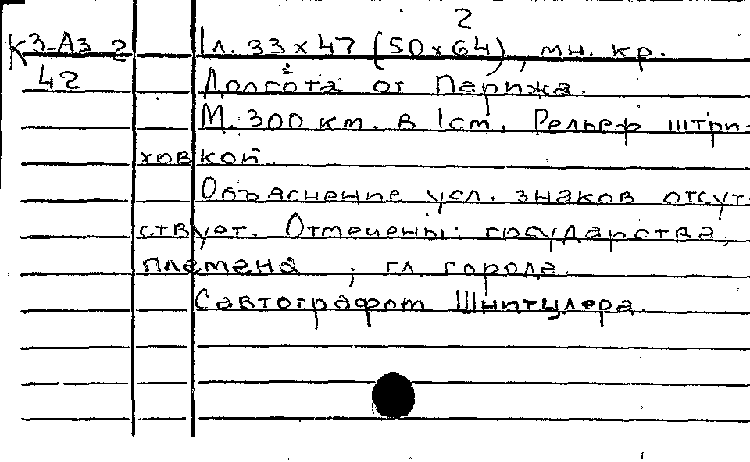 2
К3-Аз 2 1л. 33х47 (50х64), мн. кр.
42 Долгота от Перижа.
М. 300 км. в 1см. Рельеф штри-
ховкой.
Объяснение усл. знаков отсут-
ствует. Отмечены: государства,
племена, гл. города.
С автографом Шпитцлера.